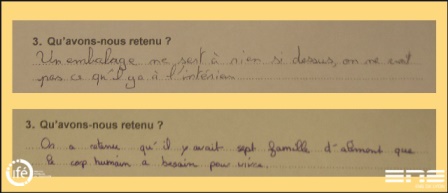 3. Qu'avons-nous retenu ?
Un embalage ne sert à rien si dessus, on ne voit
pas ce qu'il y a à l'intérieur
3. Qu'avons-nous retenu ?
On a retenu qu'il y avait sept famille d'aliment que
le corp humain a besoin pour vivre.
ifé
ENS